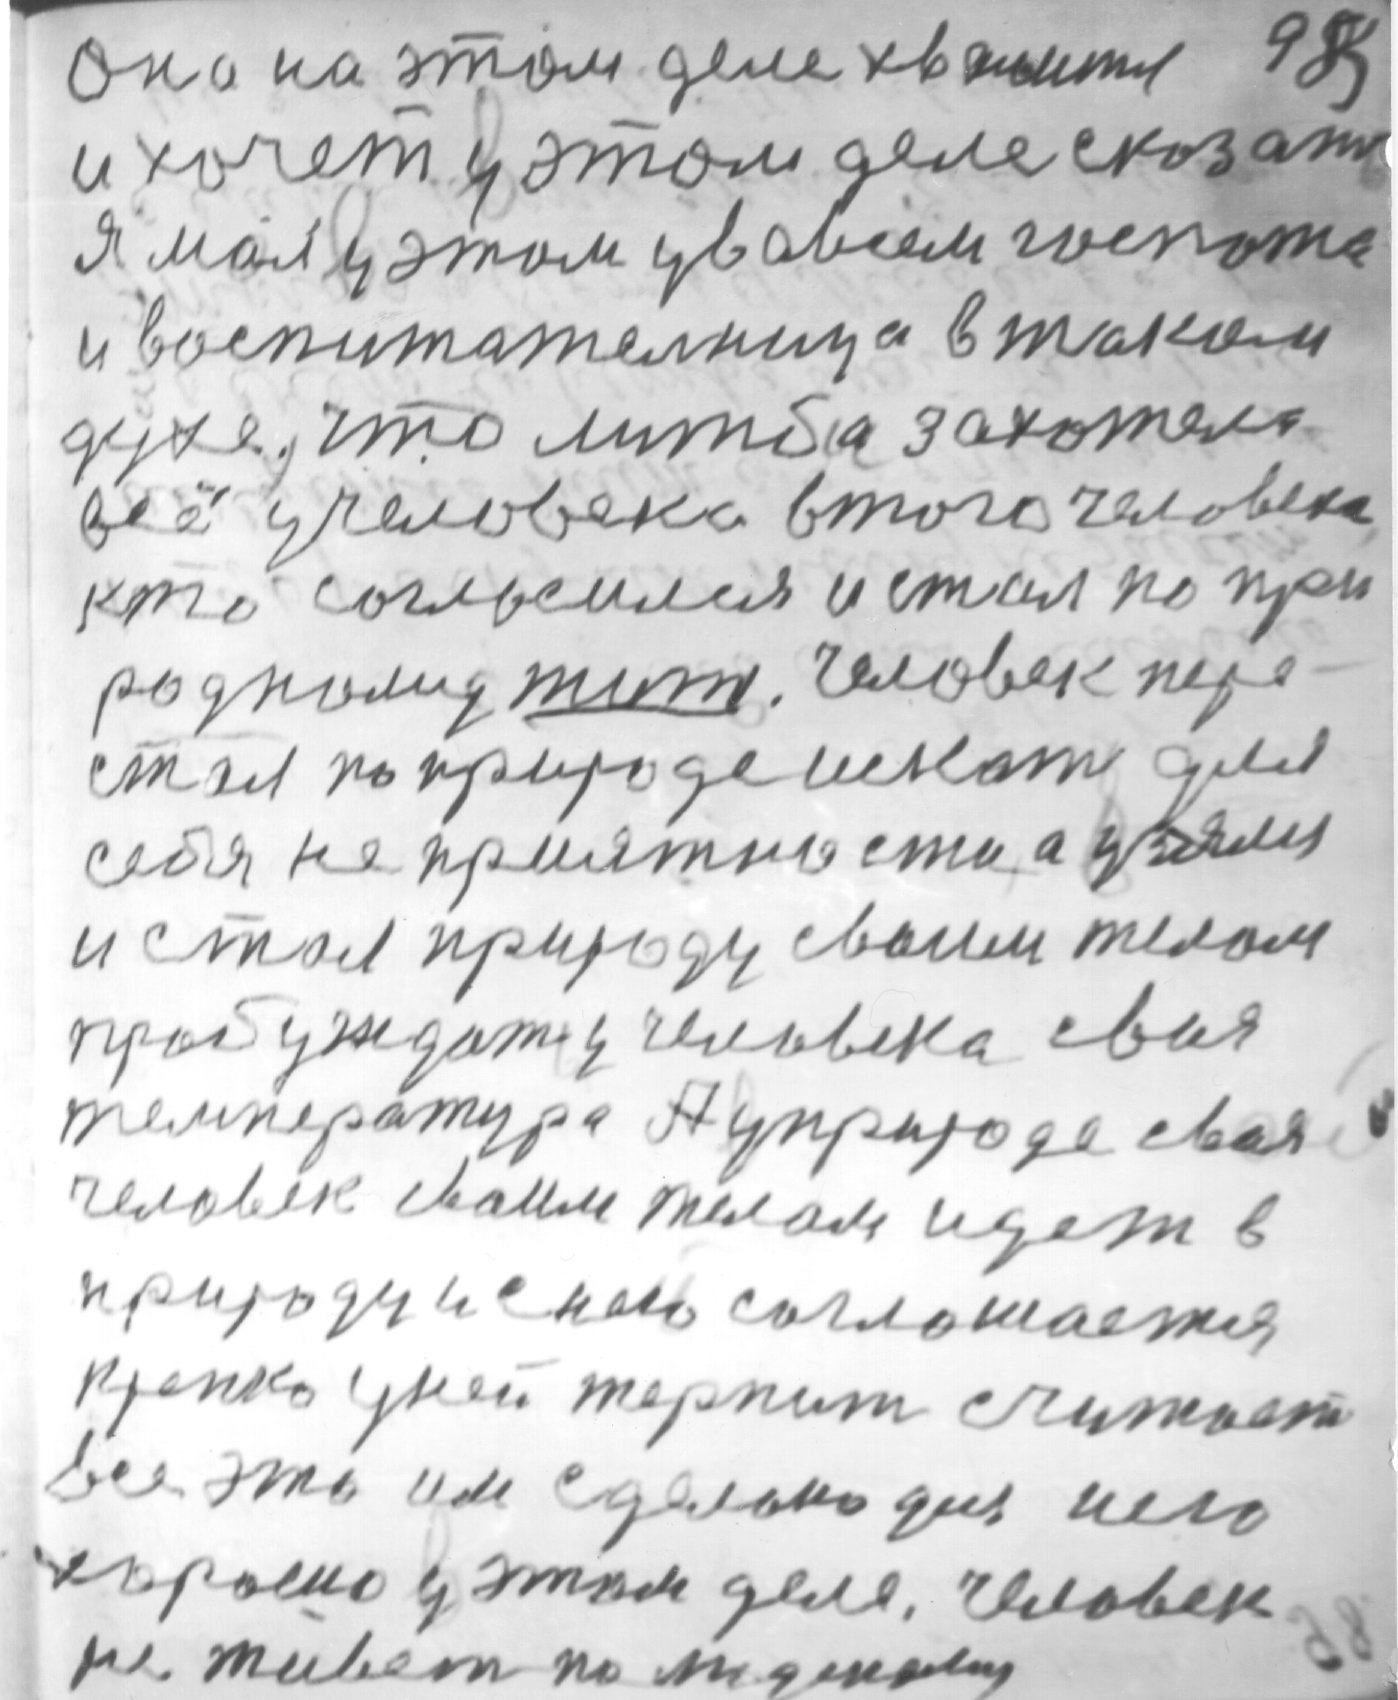 Она на этом деле хвалится
и хочет у этом деле сказать
Я мая у этом у вовсем госпожа
и воспитателница в таком
духе, что литба захотела
всё у человека в того человека,
кто согласился и стал по при
родному жить. Человек пере-
стал по природе искать для
себя неприятности, а узяли
и стал природу своим телом
пробуждать у человека своя
температура А у природе своя
человек сваим телам идет в
природу и с нею соглашается
крепко у ней терпит считает
все это им сделано для него
хорошо у этом деле. Человек
не живет по людскому